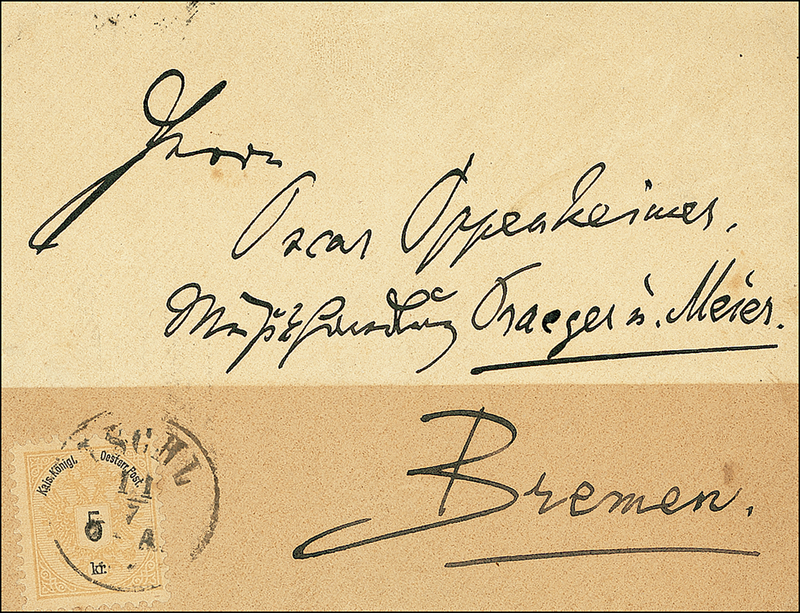 Herrn
Oscar Oppenheimer.
Musikhandlung Praeger u. Meier.
Bremen.
ISCHL
11
7
A
Kais. Königl. Oesterr. Post.
5
kr.